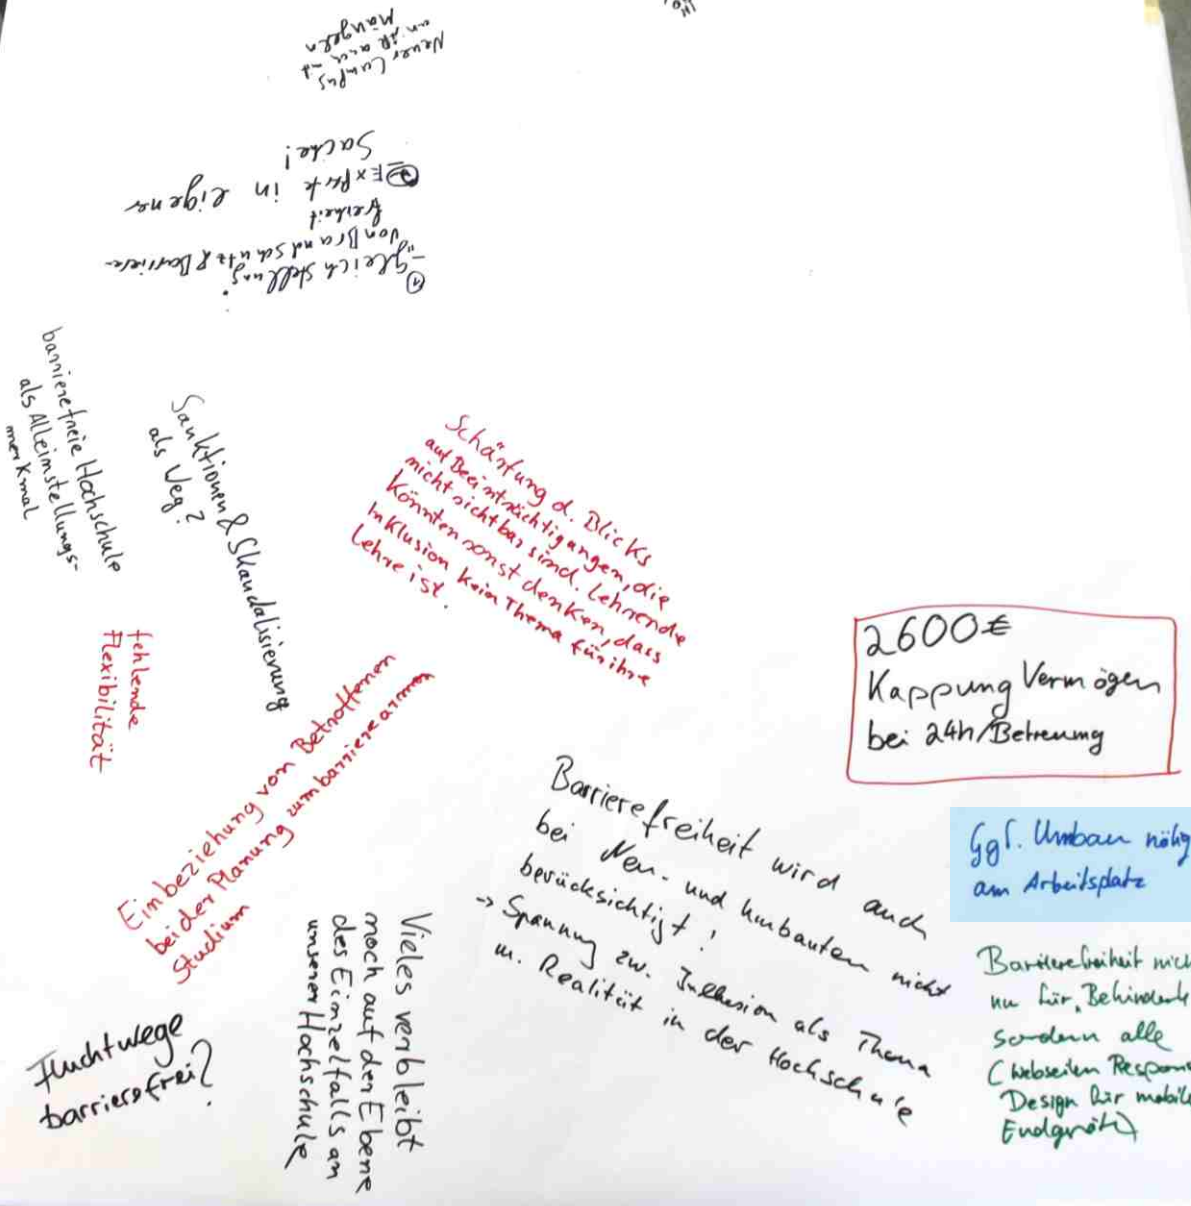 Neuer Campus
un
Mängeln
① „gleichstellung"
von Brandschutz & Barriere-
freiheit
② Experte in eigener
Sache!
barrierefreie Hochschule
als Alleinstellungs-
merkmal
Sanktionen & Skandalisierung
als Weg?
Schärfung d. Blicks
auf Beeinträchtigungen, die
nicht sichtbar sind. Lehrende
könnten sonst denken, dass
Inklusion kein Thema für ihre
Lehre ist.
fehlende
Flexibilität
Einbeziehung von Betroffenen
bei der Planung zum barrierearmen
Studium
2600€
Kappung Vermögen
bei 24h/Betreuung
Barrierefreiheit wird auch
bei Neu- und Umbauten nicht
berücksichtigt!
→ Spannung zw. Inklusion als Thema
u. Realität in der Hochschule
Ggf. Umbau nötig
am Arbeitsplatz
Barrierefreiheit nich
nu für „Behinderte
sondern alle
(Webseiten Respons
Design für mobile
Endgeräte)
Vieles verbleibt
noch auf der Ebene
des Einzelfalls an
unserer Hochschule
Fluchtwege
barrierefrei?